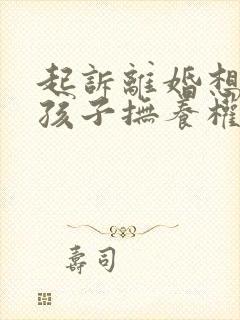 起訴離婚想
孩子撫養權
壽司